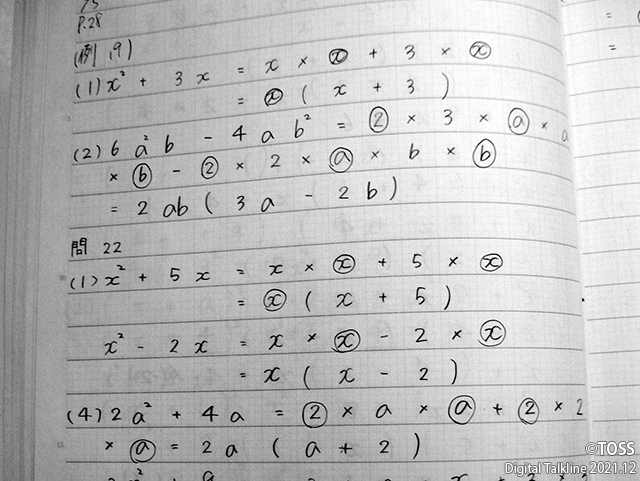 P.28
(例 19)
(1) x² + 3x = x × x + 3 × x
= x ( x + 3 )
(2) 6a²b - 4ab² = 2 × 3 × a × a
× b - 2 × 2 × a × b × b
= 2ab ( 3a - 2b )
問 22
(1) x² + 5x = x × x + 5 × x
= x ( x + 5 )
x² - 2x = x × x - 2 × x
= x ( x - 2 )
(4) 2a² + 4a = 2 × a × a + 2 × 2
× a = 2a ( a + 2 )
©TOSS
Digital Talkline 2021.12